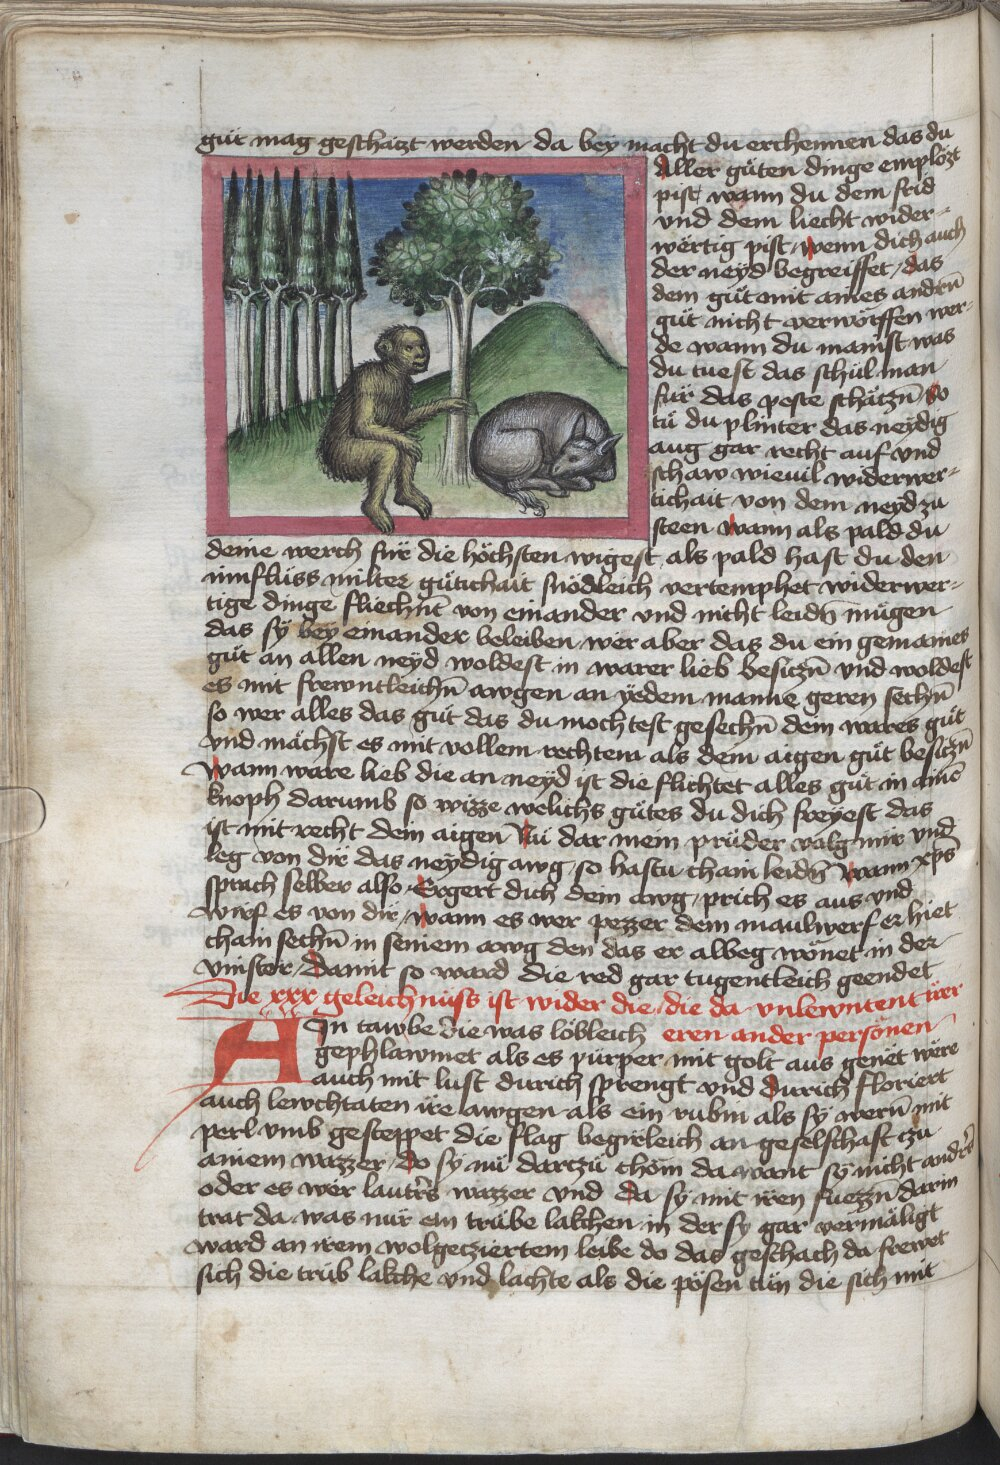 gůt mag geschatzt werden da bey macht du erchennen das du
Aller gůten dinge emplözt
pist wann du dem frid
vnd dem liecht wider-
wërtig pist wenn dich auch
der neyd begreiffet das
dem gůt mit aines andrn̄
gůt nicht verwörffen wer-
de wann du mainst was
du tuest das schül man
für das peste schätzn̄ so
tů du plinter das neydig
aug gar recht auf vnd
schaw wieuil widerwer-
tichait von dem neyd zu
steen wann als pald du
deine werch für die höchsten wigest als pald hast du den
innfluss milter gůtichait snödleich vertemphet widerwer-
tige dinge fliechn̄t von einander vnd nicht leidn̄ mügen
das sÿ bey einander beleiben wer aber das du ein gemaines
gůt an allen neyd woldest in warer lieb besiczn̄ vnd woldest
es mit frewntleichn̄ awgen an yedem manne geren sechn̄
so wer alles das gůt das du mochtest gesechn̄ dein wares gůt
vnd mächst es mit vollem rechtem als dem aigen gůt besiczn̄
wann ware lieb die an neyd ist die flichtet alles gůt in ainē
knoph darumb so wizze welichs gůtes du dich freyest das
ist mit recht dein aigen Nů dar mein prüder volg mir vnd
leg von dir das neydig awg so hastu chain leidn̄ wann xp̄s
sprach selber also Ergert dich dein awg prich es aus vnd
wirf es von dir wann es wer pezzer dem maulwerf er hiet
chain sechn̄ in seinem awg den das er albeg wönet in der
vinster Damit so ward die red gar tugentleich geendet
Die xxx geleichnüss ist wider die die da vnlewntent irer
eren ander persönen
AIn tawbe die was löbleich
gephlawmet als es purper mit golt aus genët wëre
auch mit lust durich sprengt vnd durich floriert
auch lewchtaten ire awgen als ein rubin als sÿ wern̄ mit
perl vmb gesteppet die flag begirleich an geselschaft czu
ainem wazzer Do sÿ nů darczů chöm da want sÿ nicht anders
oder es wër lautrs wazzer vnd da sÿ mit iren fuezzn̄ darin
trat da was nür ein trübe lakchen in der sy gar vermäligt
ward an irem wolgecziertem leibe do das geschach da frewet
sich die trüb lakche vnd lachte als die pösen tün die sich mit